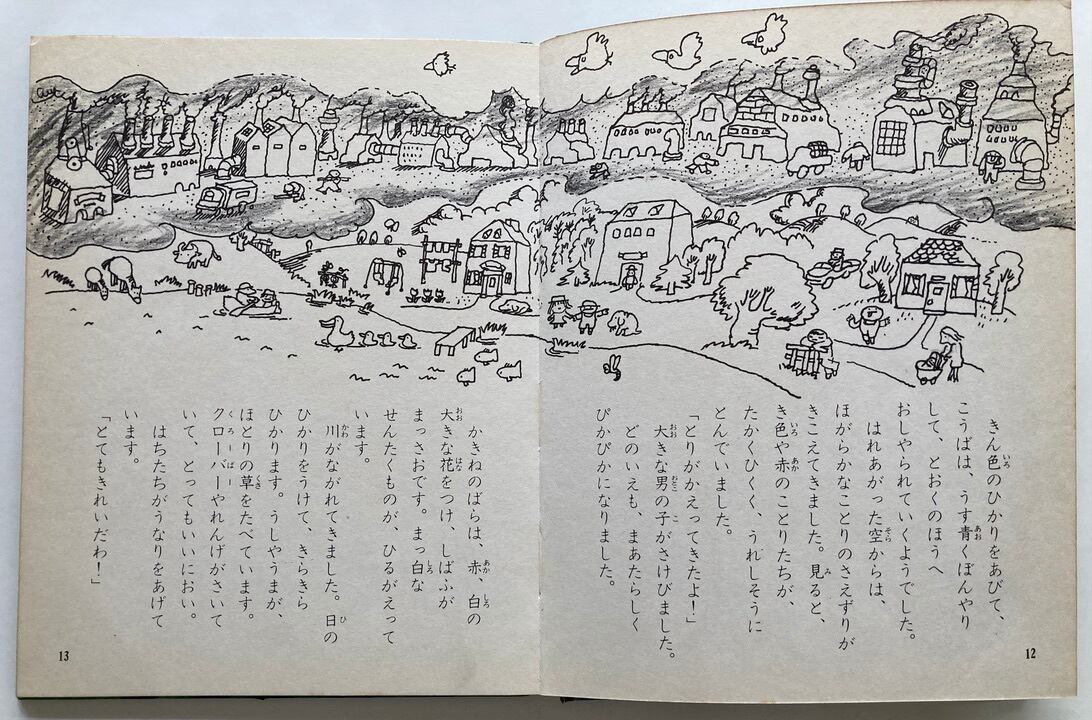 きん色のひかりをあびて、
こうばは、うす青くぼんやり
して、とおくのほうへ
おしやられていくようでした。
はれあがった空からは、
ほがらかなことりのさえずりが
きこえてきました。見ると、
き色や赤のことりたちが、
たかくひくく、うれしそうに
とんでいました。
「とりがかえってきたよ！」
大きな男の子がさけびました。
どのいえも、まあたらしく
ぴかぴかになりました。
12
かきねのばらは、赤、白の
大きな花をつけ、しばふが
まっさおです。まっ白な
せんたくものが、ひるがえって
います。
川がながれてきました。日の
ひかりをうけて、きらきら
ひかります。うしやうまが、
ほとりの草をたべています。
クローバーやれんげがさいて
いて、とってもいいにおい。
はちたちがうなりをあげて
います。
「とてもきれいだわ！」
13